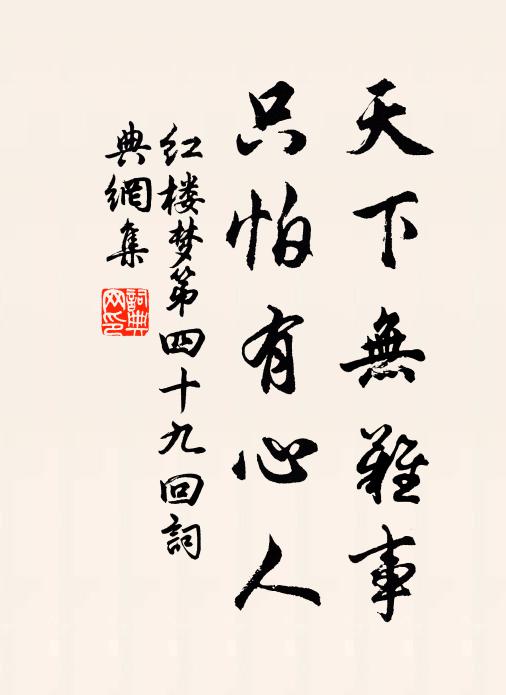 天下無難事
只怕有心人
红楼梦第四十九回詞
典網集
詞典
网印